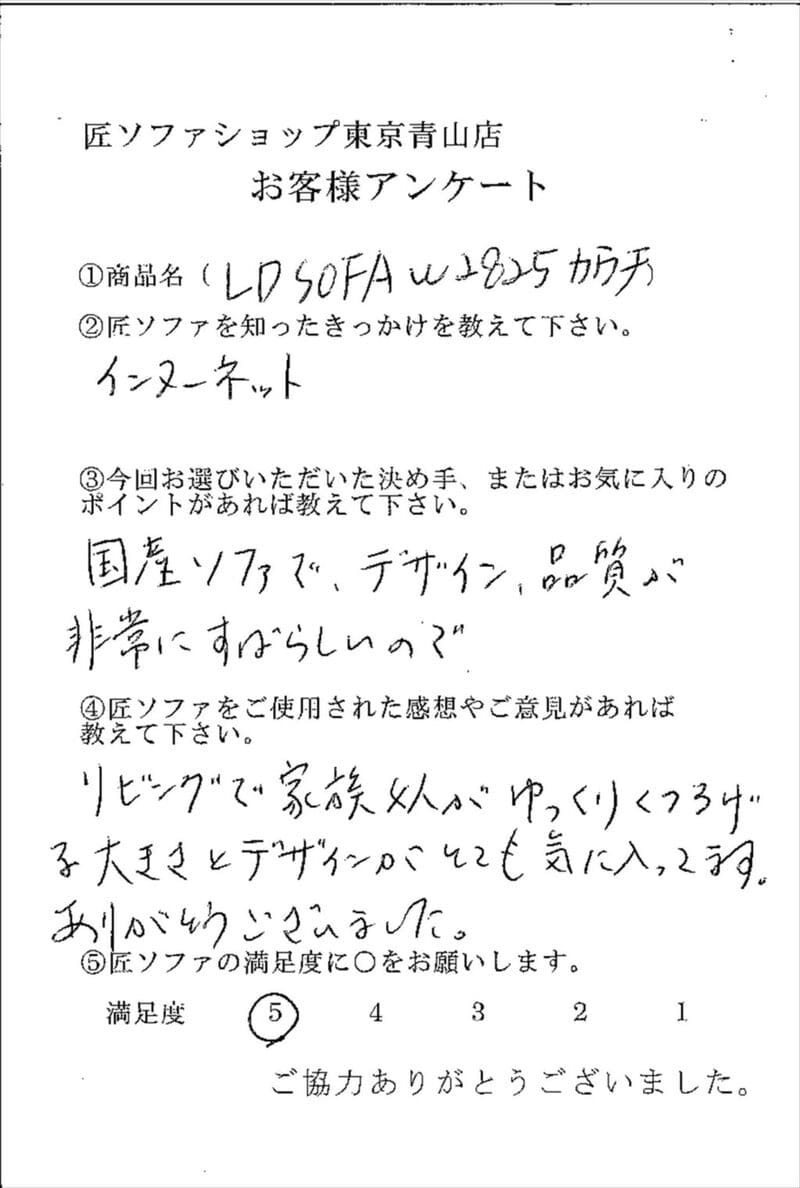 匠ソファショップ東京青山店
お客様アンケート
①商品名（LD SOFA W2825 カウチ）
②匠ソファを知ったきっかけを教えて下さい。
インターネット
③今回お選びいただいた決め手、またはお気に入りの
ポイントがあれば教えて下さい。
国産ソファで、デザイン、品質が
非常にすばらしいので
④匠ソファをご使用された感想やご意見があれば
教えて下さい。
リビングで家族4人がゆっくりくつろげ
る大きさとデザインがとても気に入ってます。
ありがとうございました。
⑤匠ソファの満足度に○をお願いします。
満足度 5 4 3 2 1
ご協力ありがとうございました。